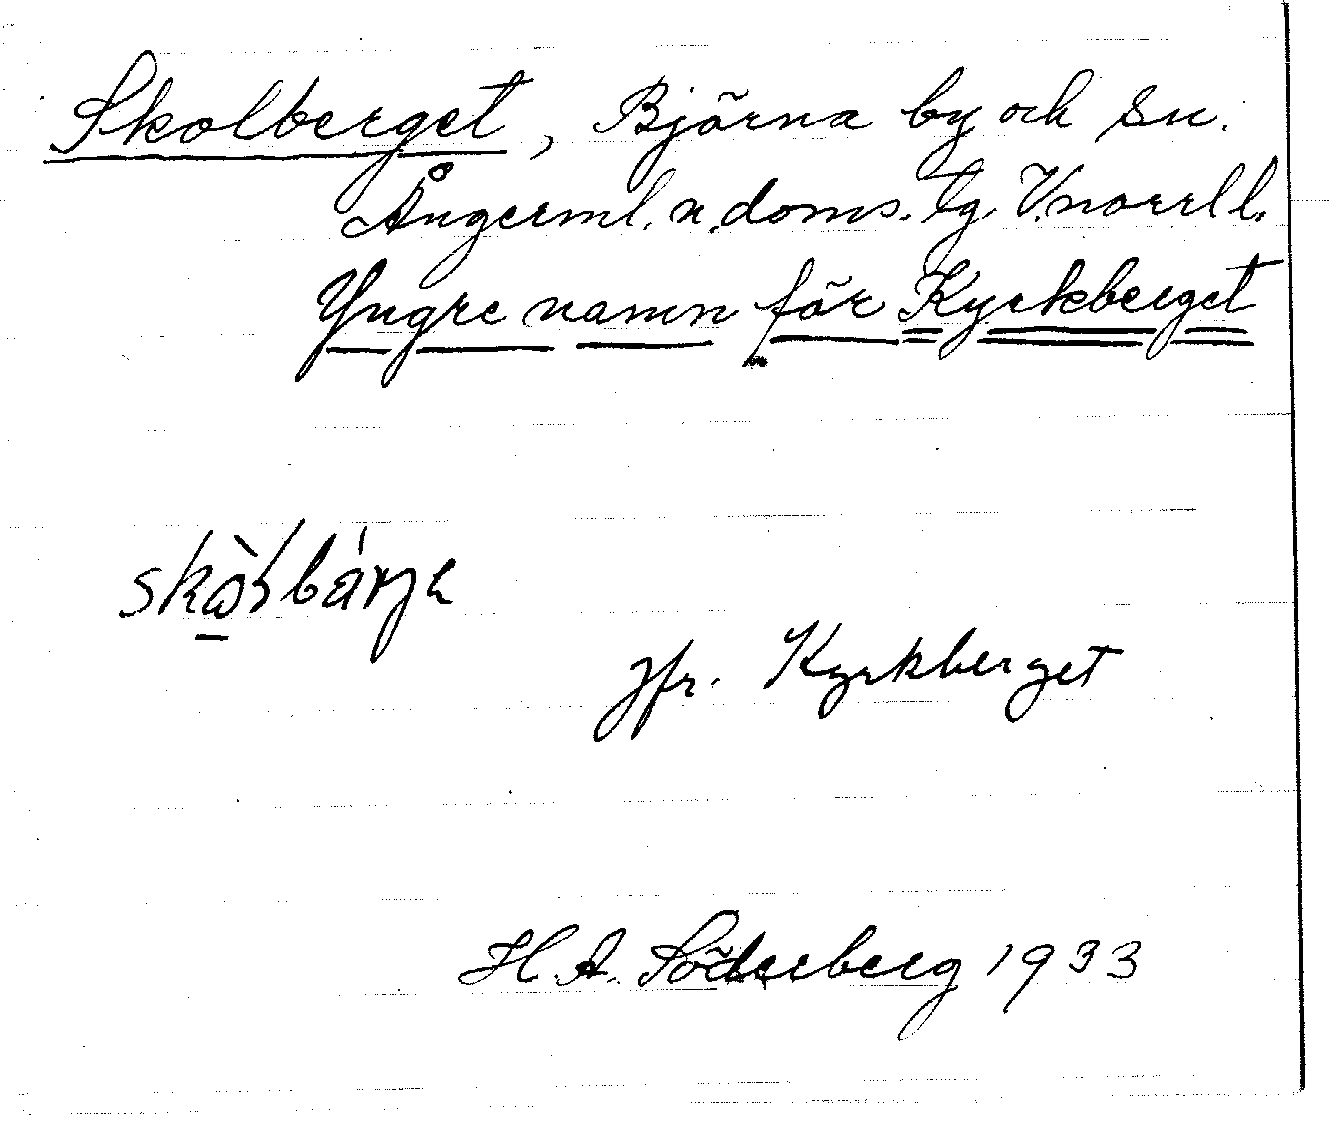 Skolberget, Björna by och sn.
Ångerml. n. doms. lg. V.norrl l.
Yngre namn för Kyrkberget
jfr. Kyrkberget
H. A. Söderberg 1933